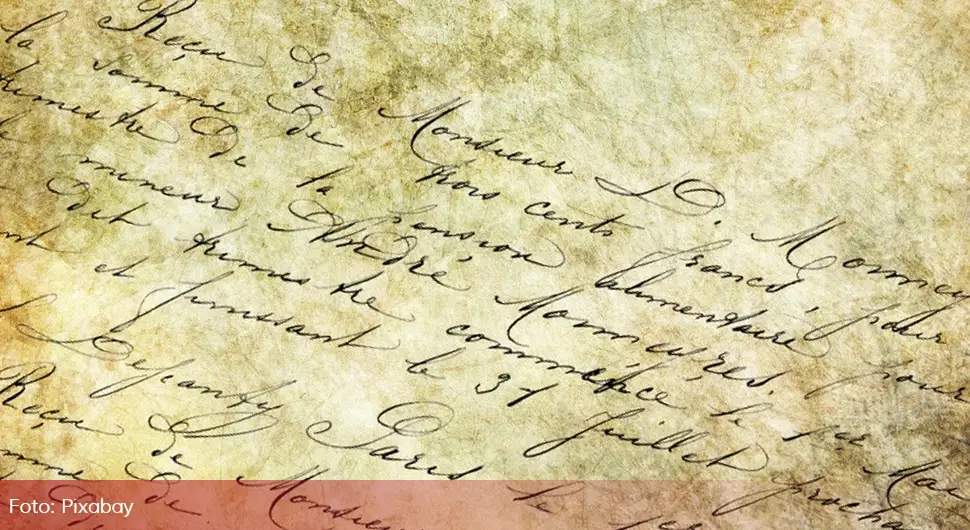 Reçu de Monsieur D. Monney
la somme de trois cents francs, pour
trimestre de la Pension alimentaire pour
mineur André Monneyrès.
dit trimestre commence le 1er Mai
nt et finissant le 31 Juillet proch
Paris le 1er
Reçu de Monsieur
mme de
Foto: Pixabay